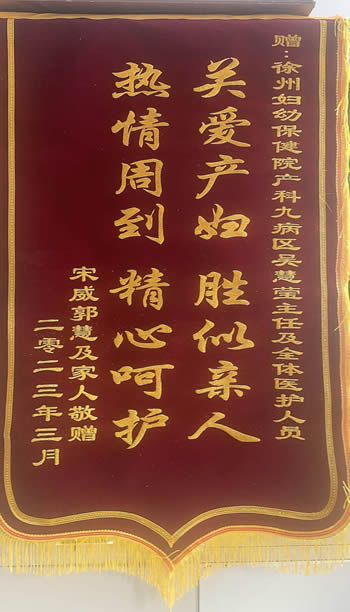 赠：徐州妇幼保健院产科九病区吴慧莹主任及全体医护人员
关爱产妇 胜似亲人
热情周到 精心呵护
宋威郭慧及家人敬赠
二零二三年三月